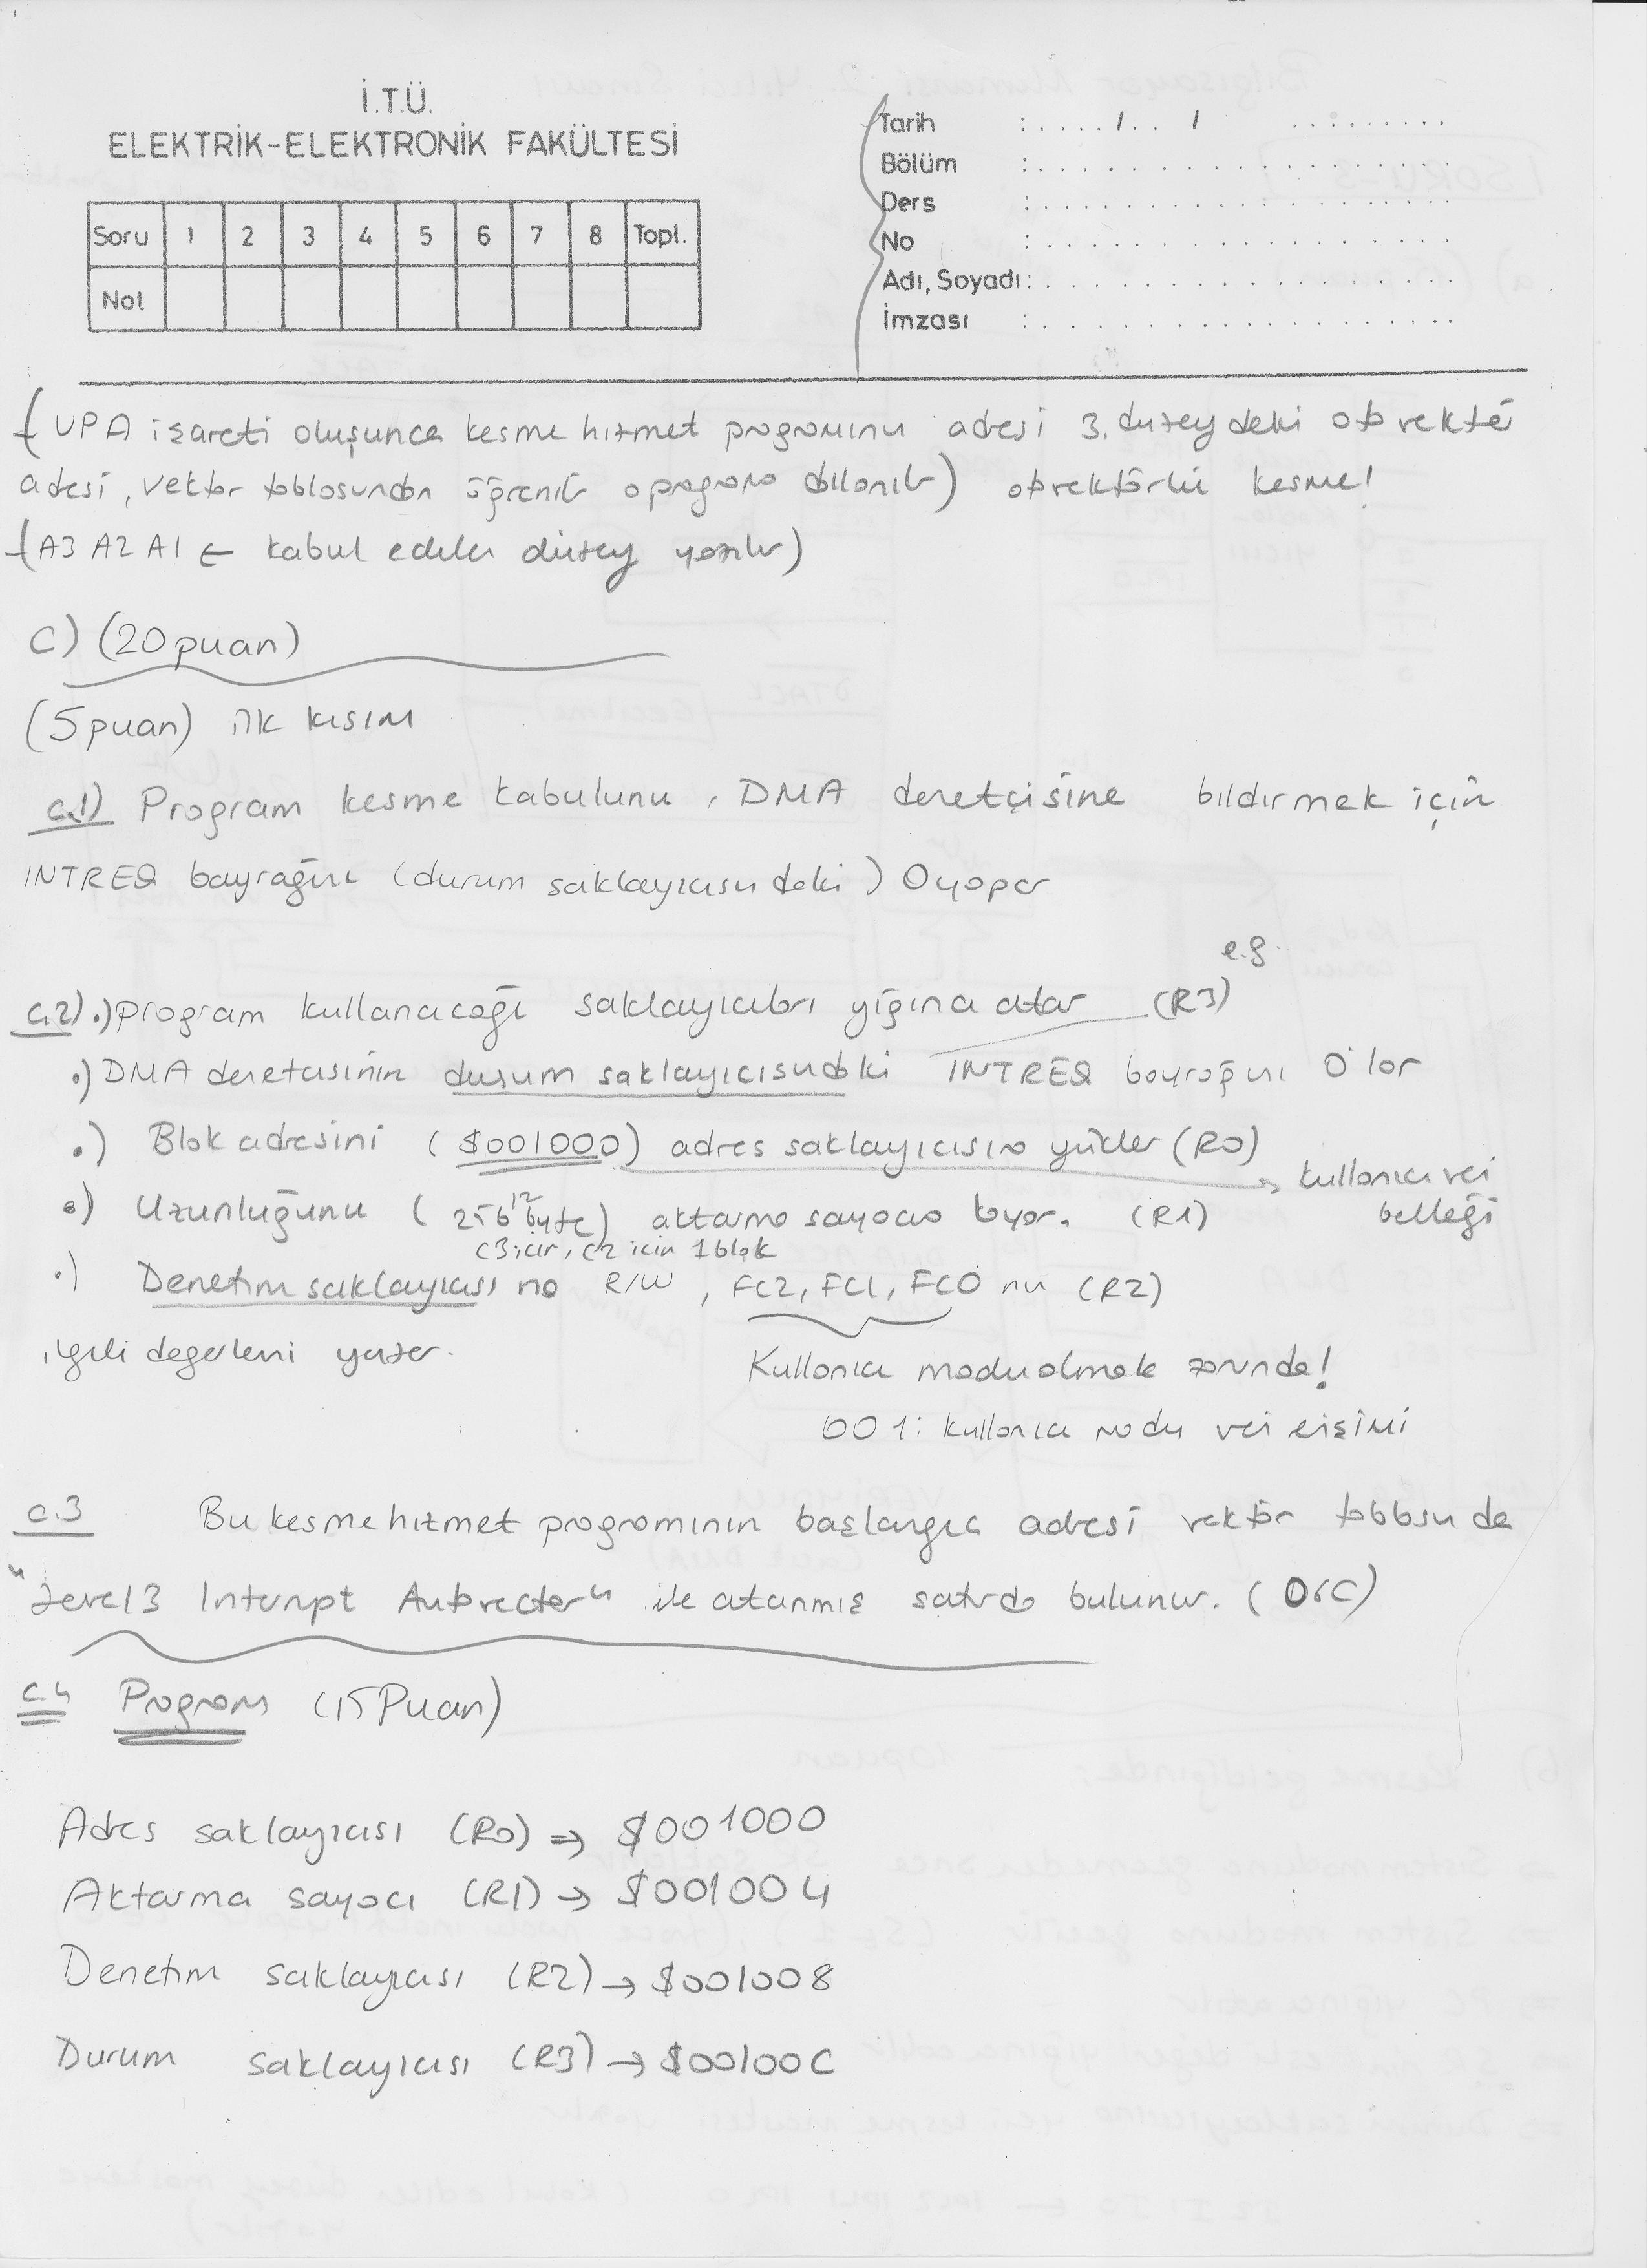 İ.T.Ü.
ELEKTRİK-ELEKTRONİK FAKÜLTESİ
Soru 1 2 3 4 5 6 7 8 Topl.
Not
Tarih : ..... / .. / .........
Bölüm : ..................
Ders : ..................
No : ..................
Adı, Soyadı : ..................
İmzası : ..................
(VPA işareti oluşunca kesme hizmet programını adresi 3. düzeydeki otovektör
adesi, vektör tablosundan öğrenilir o programa dallanılır) otovektörlü kesme!
(A3 A2 A1 ← kabul edilen düzey yazılır)
C) (20 puan)
(5 puan) ilk kısım
c.1) Program kesme kabulunu, DMA denetçisine bildirmek için
INTREQ bayrağını (durum saklayıcısındaki) 0 yapar
e.g.
c.2) .) program kullanacağı saklayıcıları yığına atar (R3)
.) DMA denetcisinin durum saklayıcısındaki INTREQ bayrağını 0'lar
.) Blok adresini ($001000) adres saklayıcısına yükler (R0)
→ kullanıcı veri belleği
.) Uzunluğunu (256 byte) aktarma sayacına koyar. (R1)
c3 için, c2 için 1 blok
.) Denetim saklayıcısına R/W, FC2, FC1, FC0 nu (R2)
ilgili degerleri yazar.
Kullanıcı modu olmak zorunda!
001: kullanıcı modu veri erişimi
c.3 Bu kesme hizmet programının başlangıç adresi vektör tablosunda
"Level 3 Interrupt Autovector" ile atanmış satırda bulunur. (06C)
c.4 Program (15 Puan)
Adres saklayıcısı (R0) ⇒ $001000
Aktarma sayacı (R1) → $001004
Denetim saklayıcısı (R2) → $001008
Durum saklayıcısı (R3) → $00100C